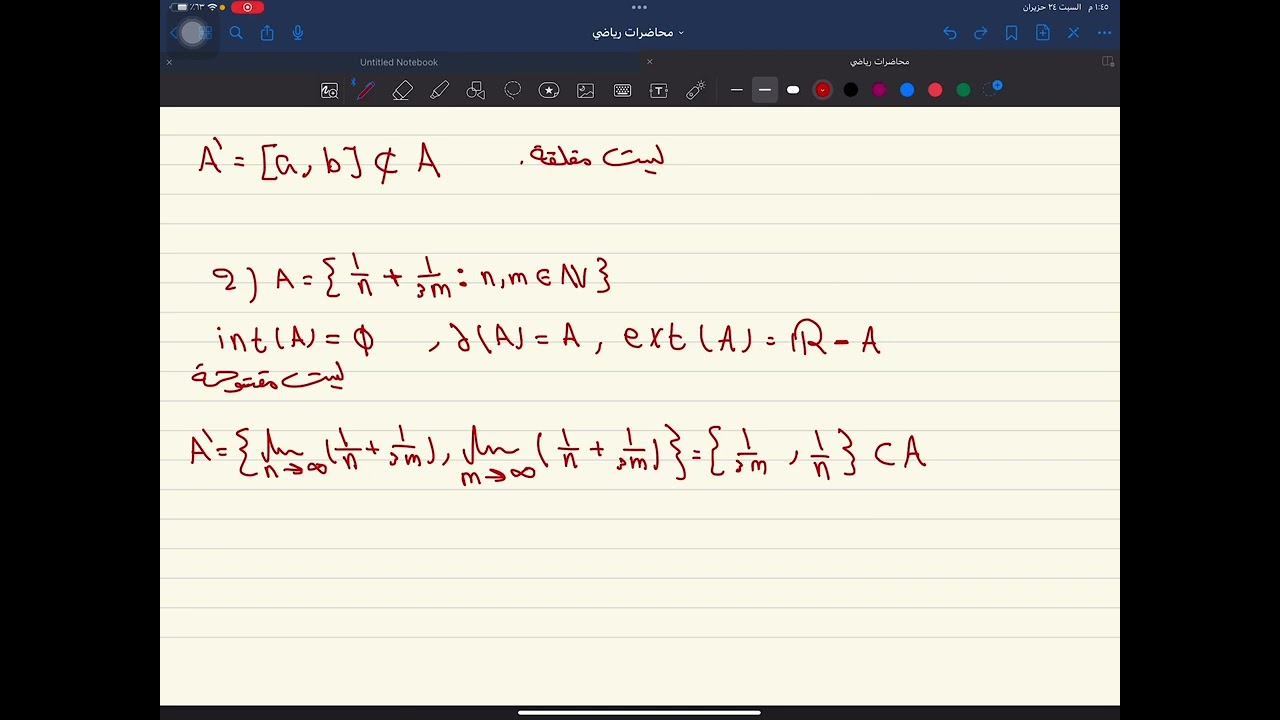 ١:٤٥ م السبت ٢٤ حزيران ٦٣٪
محاضرات رياضي
Untitled Notebook محاضرات رياضي
A' = [a, b] ⊄ A ليست مغلقة.
2) A = {1/n + 1/3m : n, m ∈ ℕ}
int(A) = ϕ , ∂(A) = A , ext(A) = ℝ - A
ليست مفتوحة
A' = {lim n→∞ (1/n + 1/3m), lim m→∞ (1/n + 1/3m)} = {1/3m , 1/n} ⊂ A